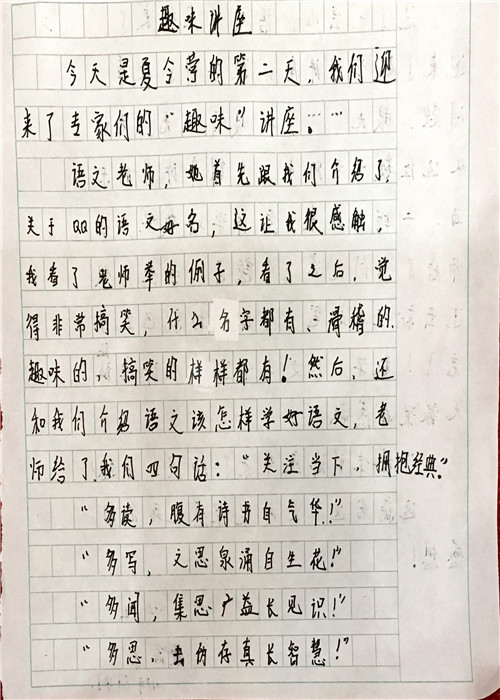 趣味讲座
今天是夏令营的第二天，我们迎
来了专家们的“趣味”讲座……
语文老师，她首先跟我们介绍了
关于QQ的语文好名，这让我很感触，
我看了老师举的例子，看了之后，觉
得非常搞笑，什么名字都有、滑稽的、
趣味的、搞笑的样样都有！然后，还
和我们介绍语文该怎样学好语文，老
师给了我们四句话：“关注当下，拥抱经典”
“多读，腹有诗书自气华！”
“多写，文思泉涌自生花！”
“多闻，集思广益长见识！”
“多思，去伪存真长智慧！”